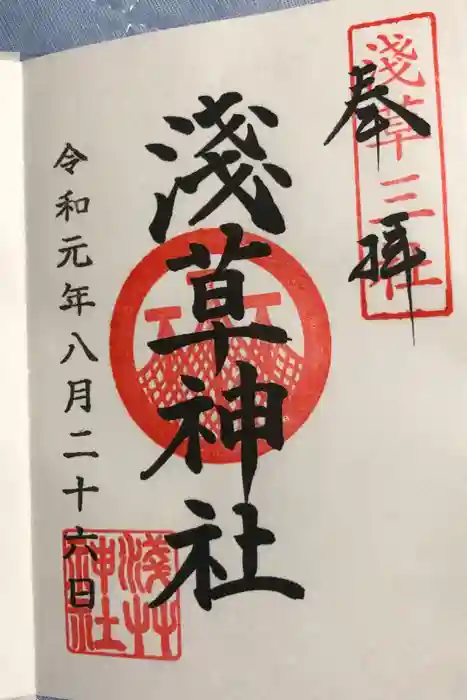 奉拝
淺草三社
淺草神社
令和元年八月二十六日
淺草神社